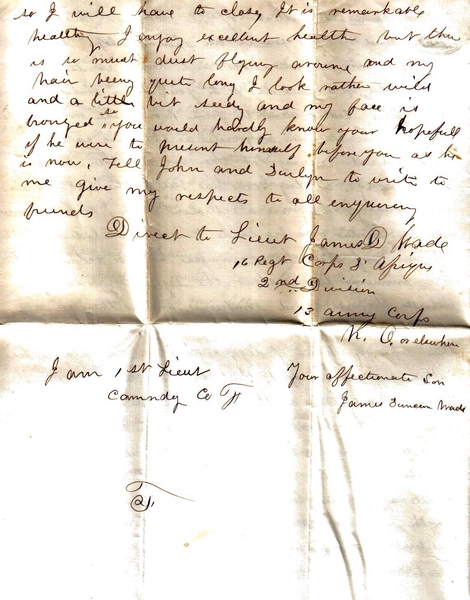 so I will have to close, It is remarkably
healthy I enjoy excellent health but there
is so much dust flying around and my
hair being quite long I look rather wild
and a little bit seedy and my face is
bronzed so you would hardly know your hopefull
if he were to present himself before you as he
is now, Tell John and to write to
me give my respects to all enquiring
friends
Direct to Lieut James D Wade
16 Regt Corps D' Afrique
2nd Division
13 army Corps
N. O or elsewhere
I am 1st Lieut
Comndg Co
Your affectionate Son
James Duncan Wade